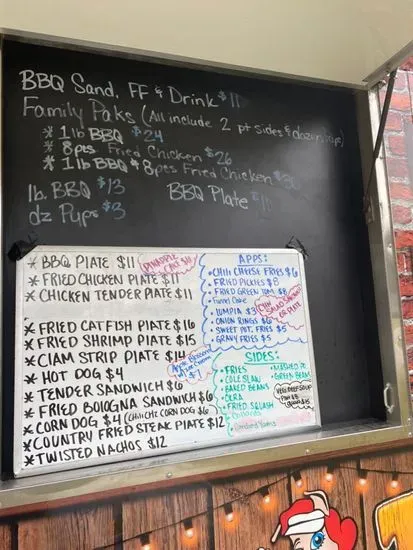 BBQ Sand, FF & Drink $11
Family Paks (All include 2 pt sides & dozen pups)
* 1 lb BBQ $24
* 8 pcs Fried Chicken $26
* 1 lb BBQ & 8 pcs Fried Chicken
lb. BBQ $13
BBQ Plate
dz Pups $3
* BBQ PLATE $11
* FRIED CHICKEN PLATE $11
* CHICKEN TENDER PLATE $11
* FRIED CATFISH PLATE $16
* FRIED SHRIMP PLATE $15
* CLAM STRIP PLATE $14
* HOT DOG $4
* TENDER SANDWICH $6
* FRIED BOLOGNA SANDWICH $6
* CORN DOG $4 (CHIC/CHZ CORN DOG $6)
* COUNTRY FRIED STEAK PLATE $12
* TWISTED NACHOS $12
PINAPPLE
CAKE
Apple Blossom
Ice Cream
$7
APPS:
• CHILI CHEESE FRIES $6
• FRIED PICKLES $8
• FRIED GREEN TOM. $8
• Funnel Cake
• LUMPIA $3
• ONION RINGS $6
• SWEET POT. FRIES $5
• GRAVY FRIES $5
CHIX
SALAD SANDWICH
OR PLATE
SIDES:
• FRIES
• COLESLAW
• BAKED BEANS
• OKRA
• FRIED SQUASH
• Collards
• Candied Yams
• MASHED PO.
• GREEN BEAN
VEG BEEF SOUP
Pint $8
Quart $15